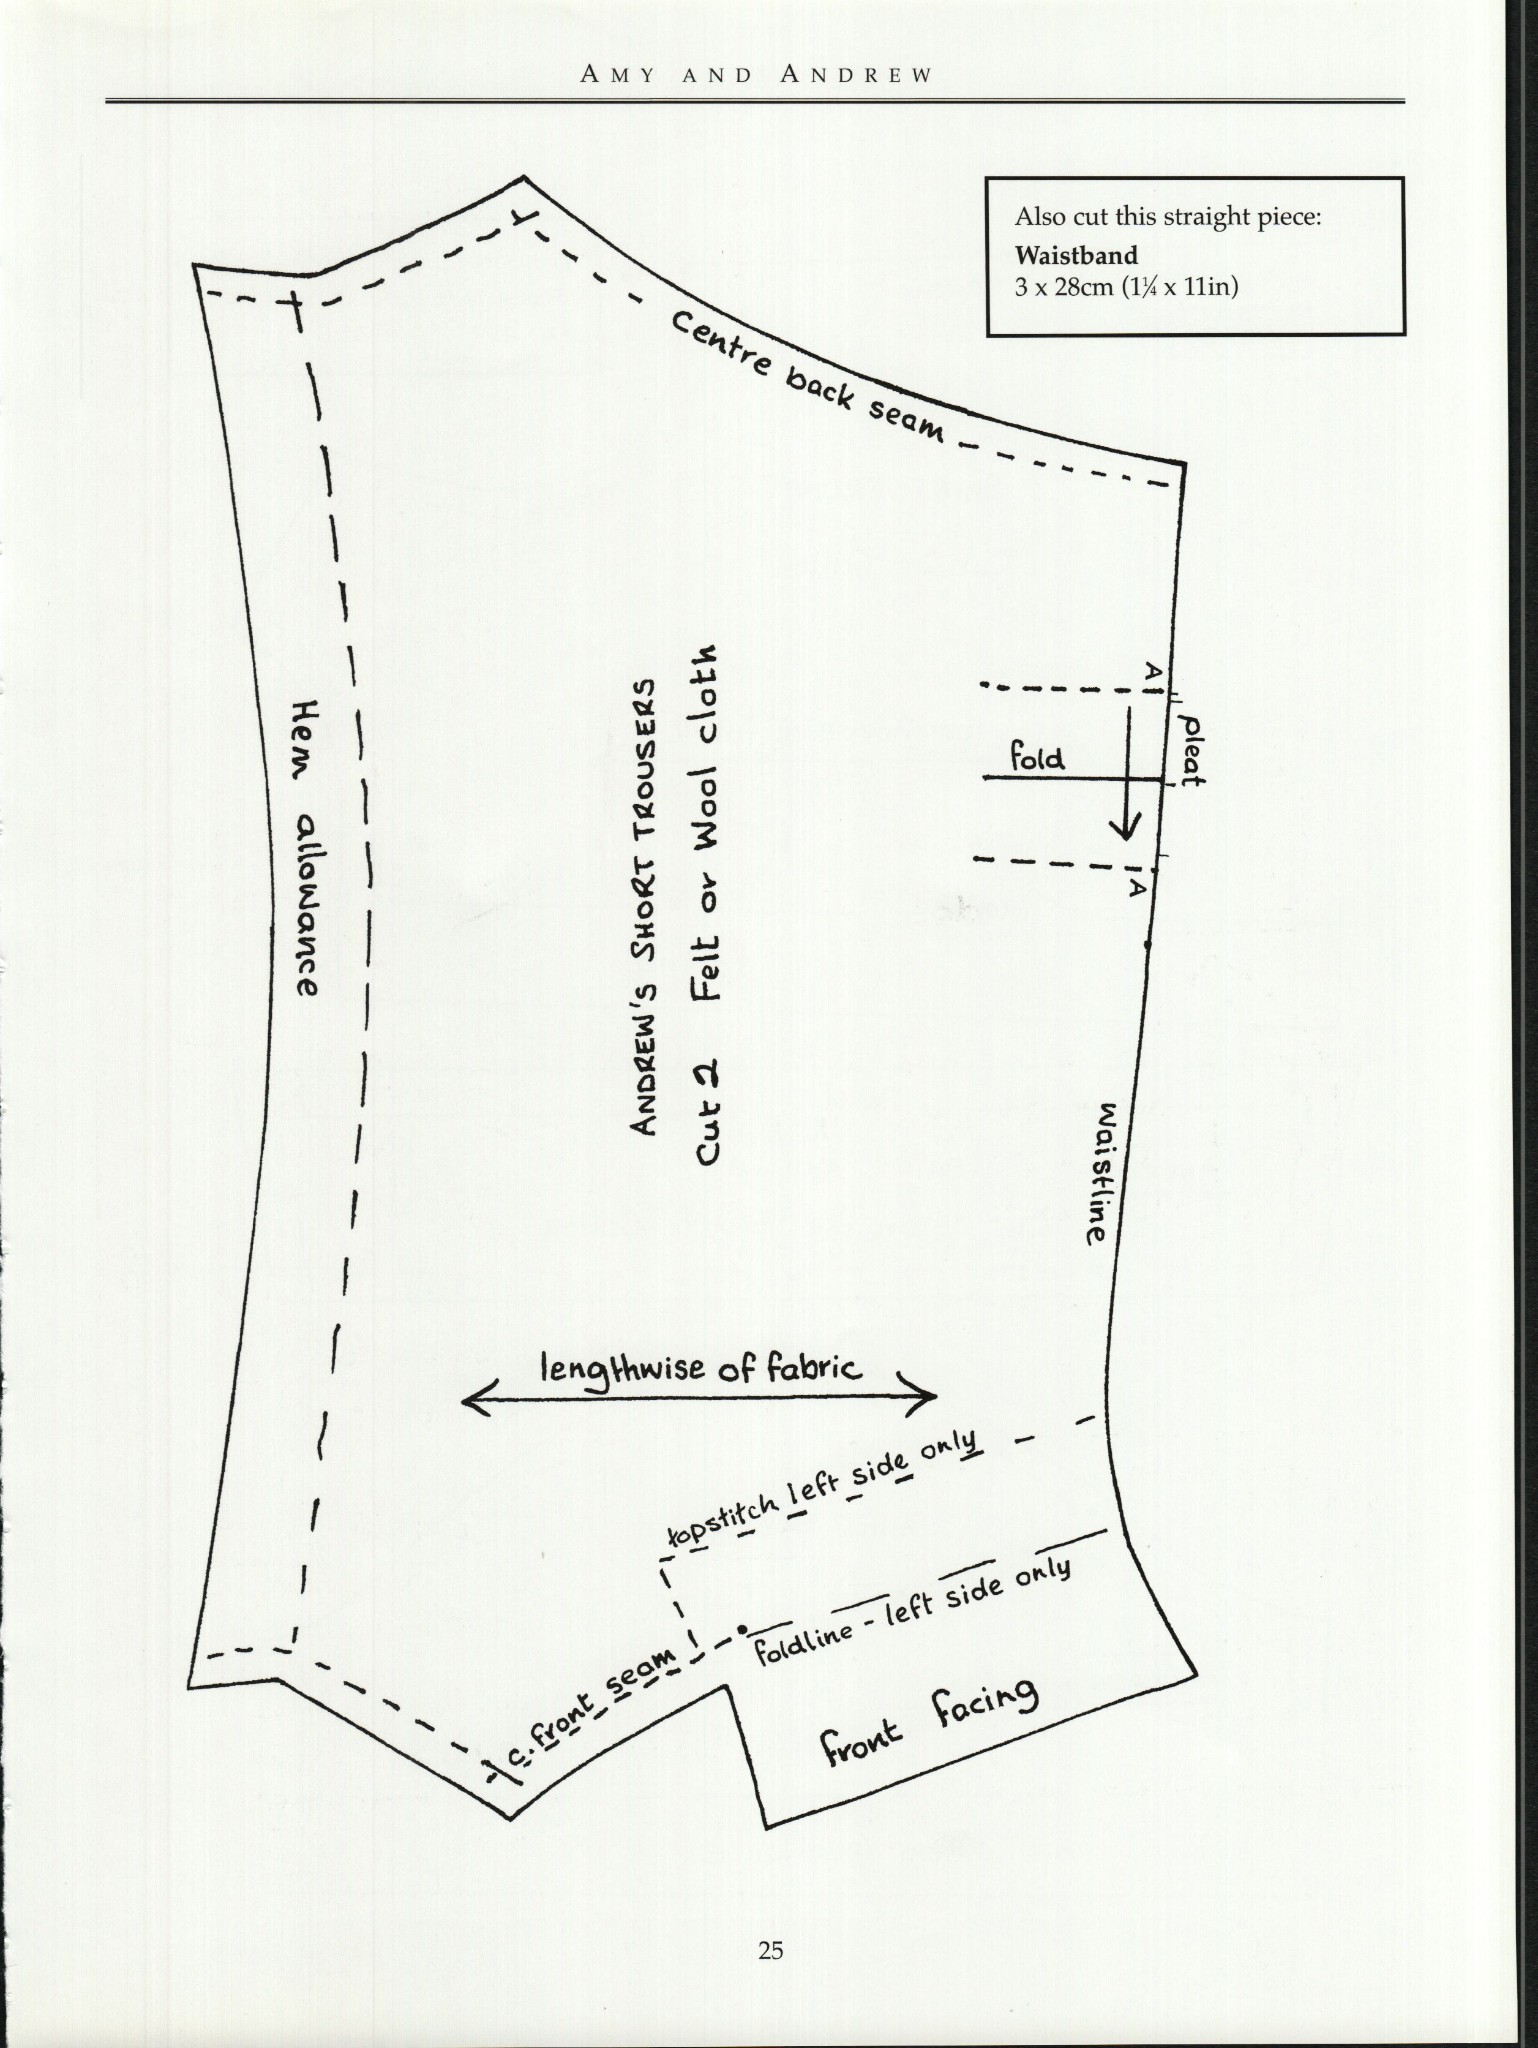 AMY AND ANDREW
Also cut this straight piece:
Waistband
3 x 28cm (1¼ x 11in)
Centre back seam
A
pleat
fold
A
Hem allowance
ANDREW'S SHORT TROUSERS
Cut 2 Felt or Wool cloth
waistline
lengthwise of fabric
topstitch left side only
foldline - left side only
c. front seam
front facing
25